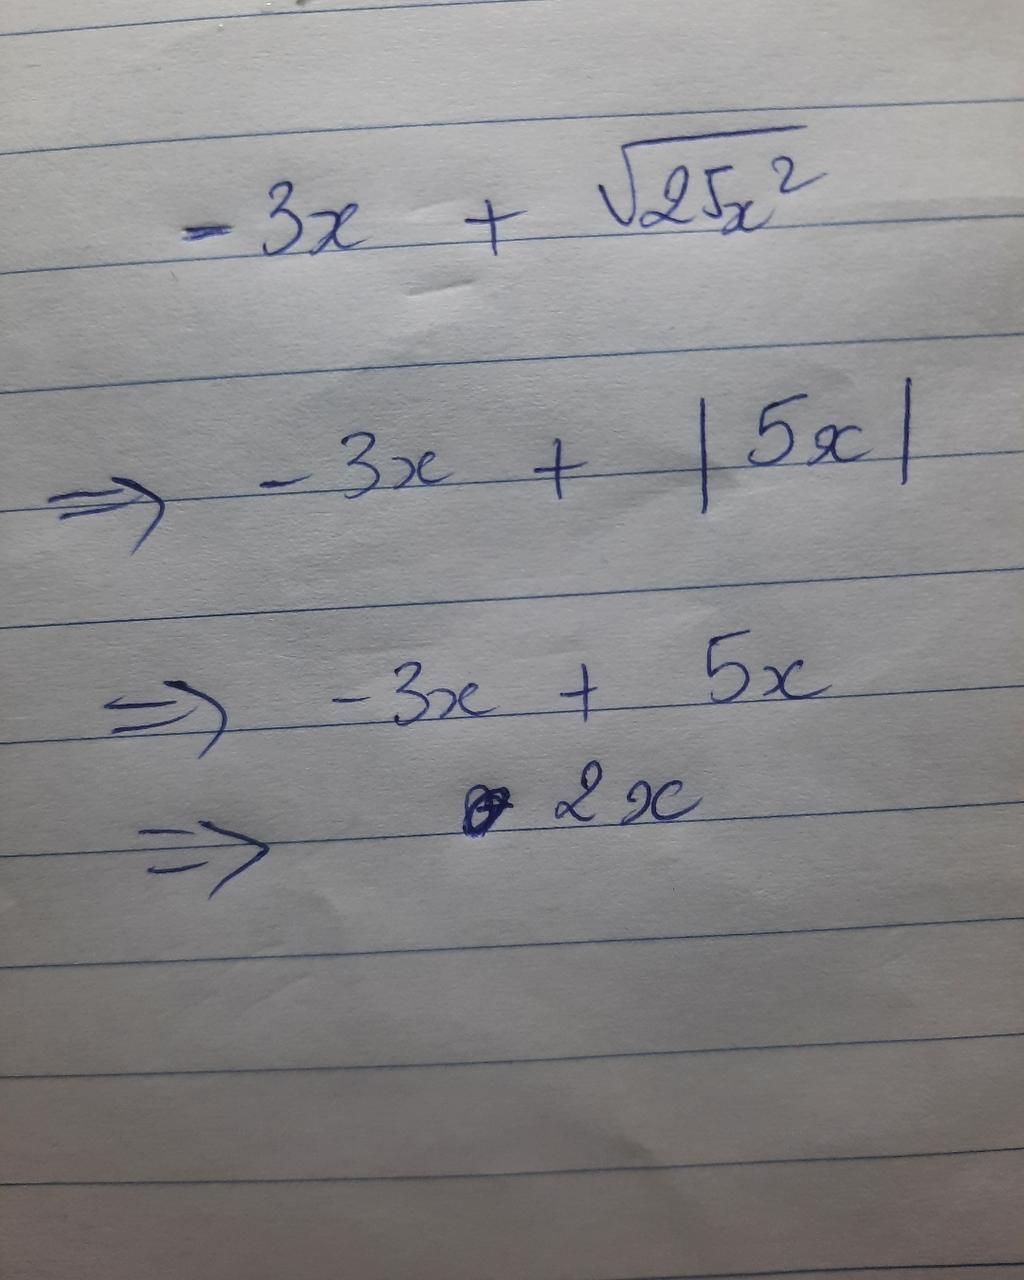 - 3x + √25x²
⇒ - 3x + |5x|
⇒ - 3x + 5x
⇒ 2x